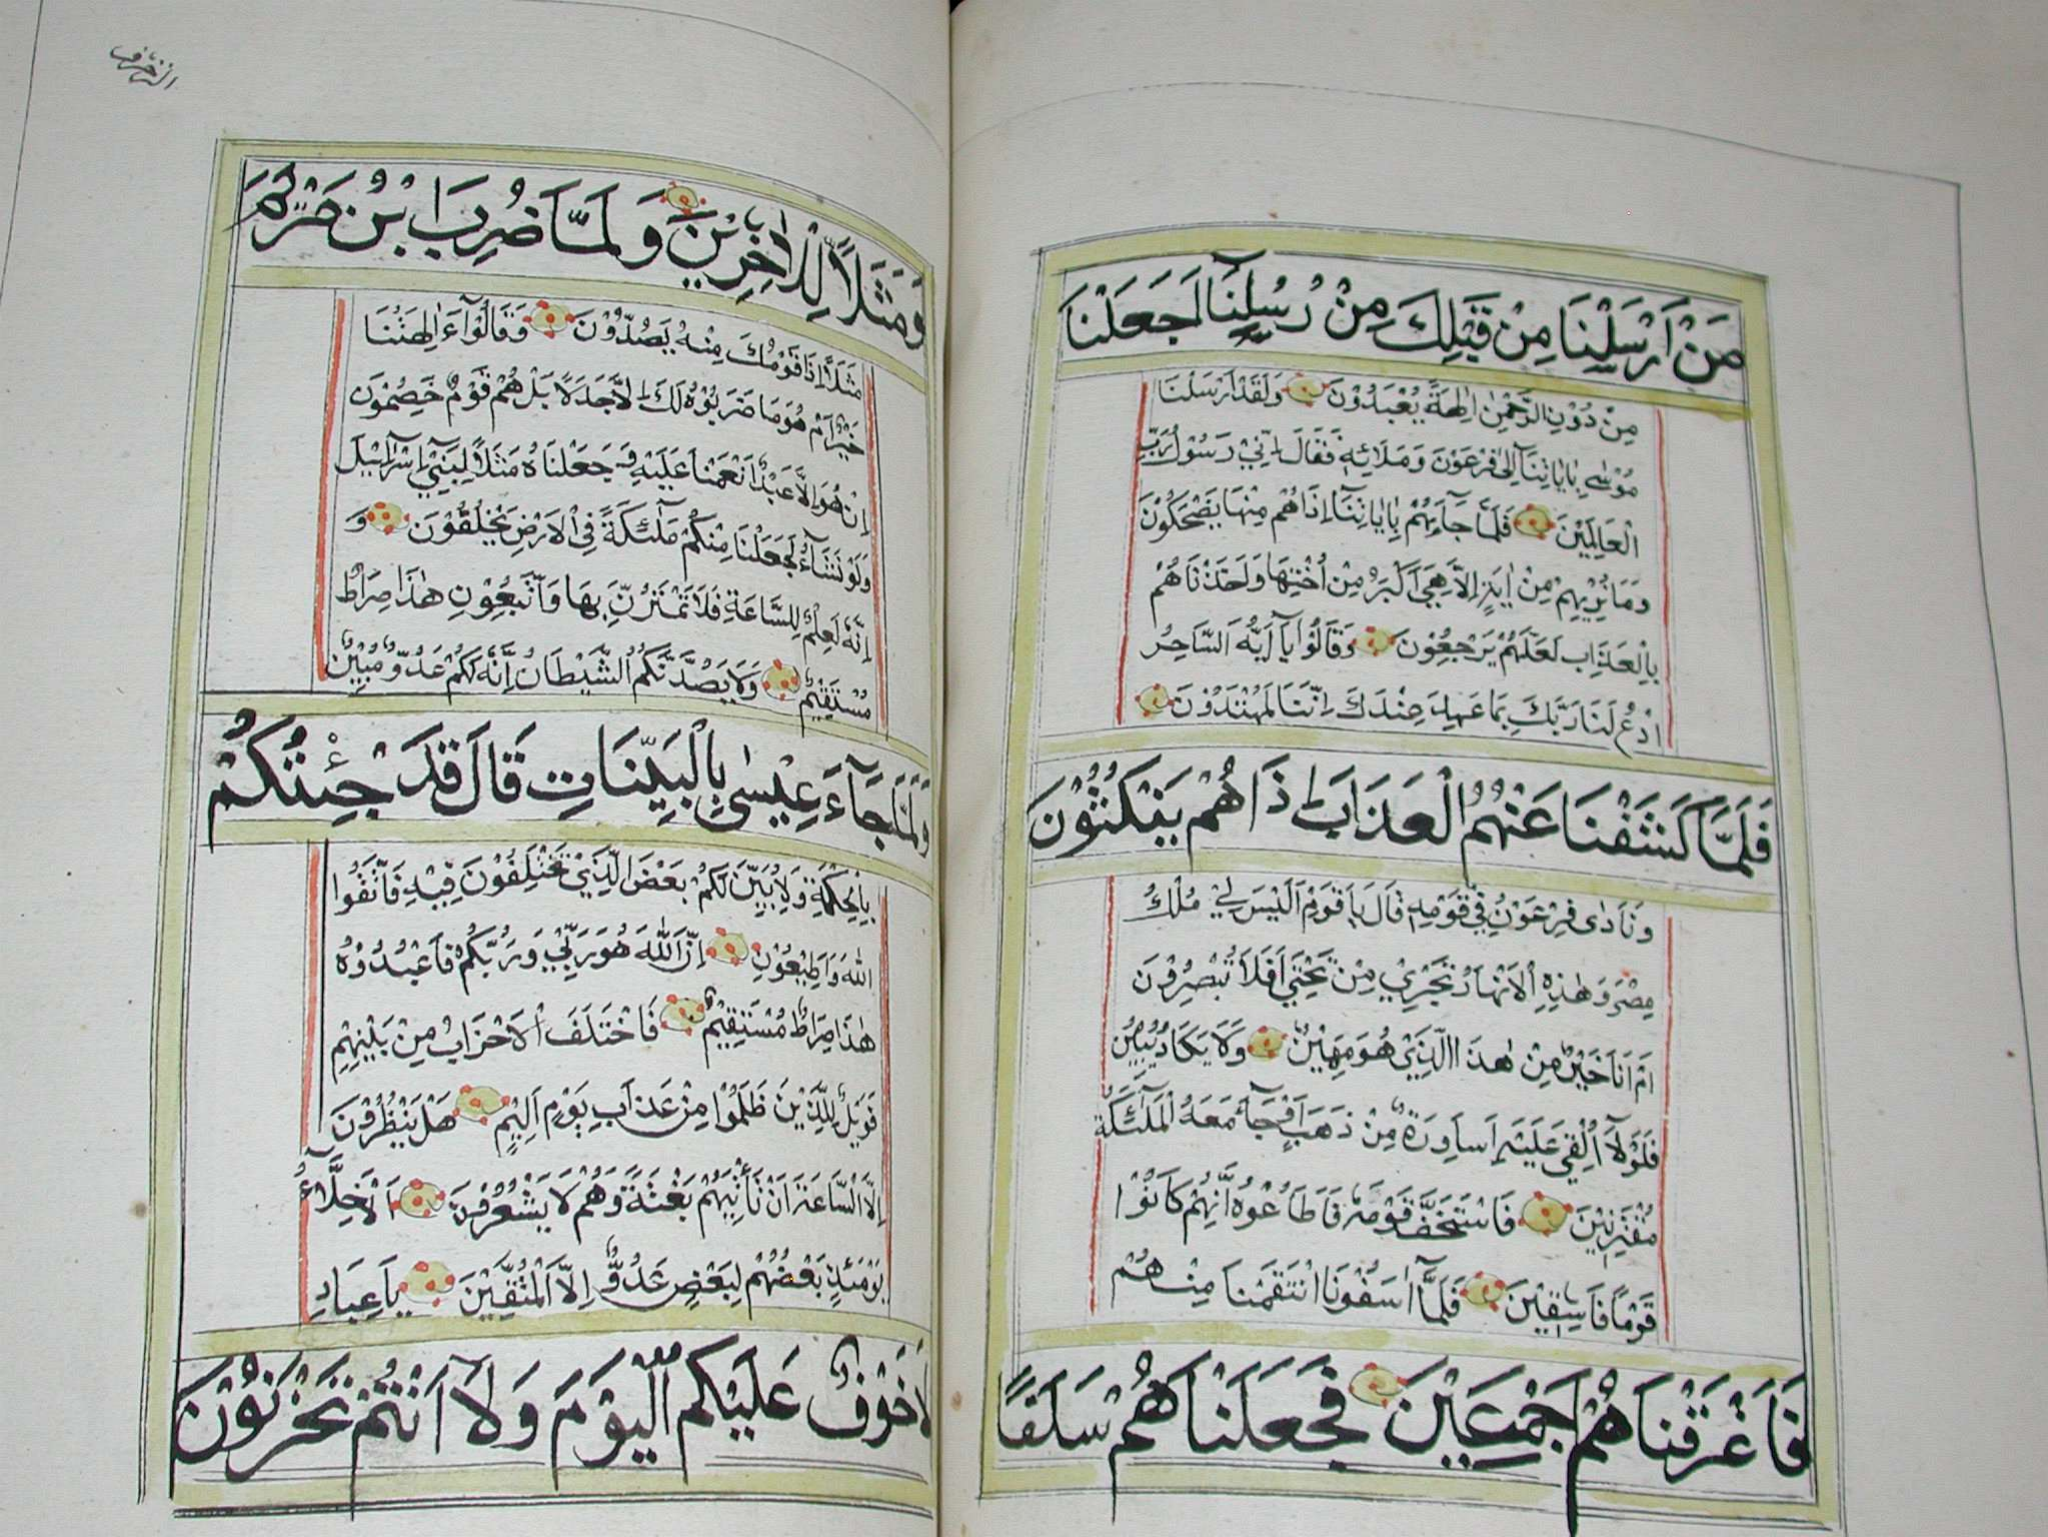 مَنْ اَرْسَلْنَا مِنْ قَبْلِكَ مِنْ رُسُلِنَآ اَجَعَلْنَا
مِنْ دُوْنِ الرَّحْمٰنِ اٰلِهَةً يُعْبَدُوْنَ وَلَقَدْ اَرْسَلْنَا
مُوْسٰى بِاٰيَاتِنَآ اِلٰى فِرْعَوْنَ وَمَلَائِهٖ فَقَالَ اِنِّيْ رَسُوْلُ رَبِّ
الْعَالَمِيْنَ فَلَمَّا جَآءَهُمْ بِاٰيَاتِنَآ اِذَا هُمْ مِنْهَا يَضْحَكُوْنَ
وَمَا نُرِيْهِمْ مِنْ اٰيَةٍ اِلاَّ هِيَ اَكْبَرُ مِنْ اُخْتِهَا وَاَخَذْنَاهُمْ
بِالْعَذَابِ لَعَلَّهُمْ يَرْجِعُوْنَ وَقَالُوْا يَآ اَيُّهَ السَّاحِرُ
ادْعُ لَنَا رَبَّكَ بِمَا عَهِدَ عِنْدَكَ اِنَّنَا لَمُهْتَدُوْنَ
فَلَمَّا كَشَفْنَا عَنْهُمُ الْعَذَابَ اِذَا هُمْ يَنْكُثُوْنَ
وَنَادٰى فِرْعَوْنُ فِيْ قَوْمِهٖ قَالَ يَا قَوْمِ اَلَيْسَ لِيْ مُلْكُ
مِصْرَ وَهٰذِهِ الْاَنْهَارُ تَجْرِيْ مِنْ تَحْتِيْ اَفَلاَ تُبْصِرُوْنَ
اَمْ اَنَا خَيْرٌ مِنْ هٰذَا الَّذِيْ هُوَ مَهِيْنٌ وَلاَ يَكَادُ يُبِيْنُ
فَلَوْلَآ اُلْقِيَ عَلَيْهِ اَسَاوِرَةٌ مِنْ ذَهَبٍ اَوْ جَآءَ مَعَهُ الْمَلٰٓئِكَةُ
مُقْتَرِنِيْنَ فَاسْتَخَفَّ قَوْمَهٗ فَاَطَاعُوْهُ اِنَّهُمْ كَانُوْا
قَوْمًا فَاسِقِيْنَ فَلَمَّآ اٰسَفُوْنَا انْتَقَمْنَا مِنْهُمْ
فَاَغْرَقْنَاهُمْ اَجْمَعِيْنَ فَجَعَلْنَاهُمْ سَلَفًا
الزخرف
وَمَثَلاً لِلْاٰخِرِيْنَ وَلَمَّا ضُرِبَ ابْنُ مَرْيَمَ
مَثَلاً اِذَا قَوْمُكَ مِنْهُ يَصُدُّوْنَ وَقَالُوْآ ءَاٰلِهَتُنَا
خَيْرٌ اَمْ هُوَ مَا ضَرَبُوْهُ لَكَ اِلاَّ جَدَلًا بَلْ هُمْ قَوْمٌ خَصِمُوْنَ
اِنْ هُوَ اِلاَّ عَبْدٌ اَنْعَمْنَا عَلَيْهِ وَجَعَلْنَاهُ مَثَلاً لِبَنِيْٓ اِسْرَآئِيْلَ
وَلَوْ نَشَآءُ لَجَعَلْنَا مِنْكُمْ مَلٰٓئِكَةً فِي الْاَرْضِ يَخْلُفُوْنَ وَ
اِنَّهٗ لَعِلْمٌ لِلسَّاعَةِ فَلاَ تَمْتَرُنَّ بِهَا وَاتَّبِعُوْنِ هٰذَا صِرَاطٌ
مُسْتَقِيْمٌ وَلاَ يَصُدَّنَّكُمُ الشَّيْطَانُ اِنَّهٗ لَكُمْ عَدُوٌّ مُبِيْنٌ
وَلَمَّا جَآءَ عِيْسٰى بِالْبَيِّنَاتِ قَالَ قَدْ جِئْتُكُمْ
بِالْحِكْمَةِ وَلِاُبَيِّنَ لَكُمْ بَعْضَ الَّذِيْ تَخْتَلِفُوْنَ فِيْهِ فَاتَّقُوا
اللّٰهَ وَاَطِيْعُوْنِ اِنَّ اللّٰهَ هُوَ رَبِّيْ وَرَبُّكُمْ فَاعْبُدُوْهُ
هٰذَا صِرَاطٌ مُسْتَقِيْمٌ فَاخْتَلَفَ الْاَحْزَابُ مِنْ بَيْنِهِمْ
فَوَيْلٌ لِلَّذِيْنَ ظَلَمُوْا مِنْ عَذَابِ يَوْمٍ اَلِيْمٍ هَلْ يَنْظُرُوْنَ
اِلاَّ السَّاعَةَ اَنْ تَأْتِيَهُمْ بَغْتَةً وَهُمْ لاَ يَشْعُرُوْنَ اَلْاَخِلَّآءُ
يَوْمَئِذٍ بَعْضُهُمْ لِبَعْضٍ عَدُوٌّ اِلاَّ الْمُتَّقِيْنَ يَا عِبَادِ
لاَ خَوْفٌ عَلَيْكُمُ الْيَوْمَ وَلَآ اَنْتُمْ تَحْزَنُوْنَ